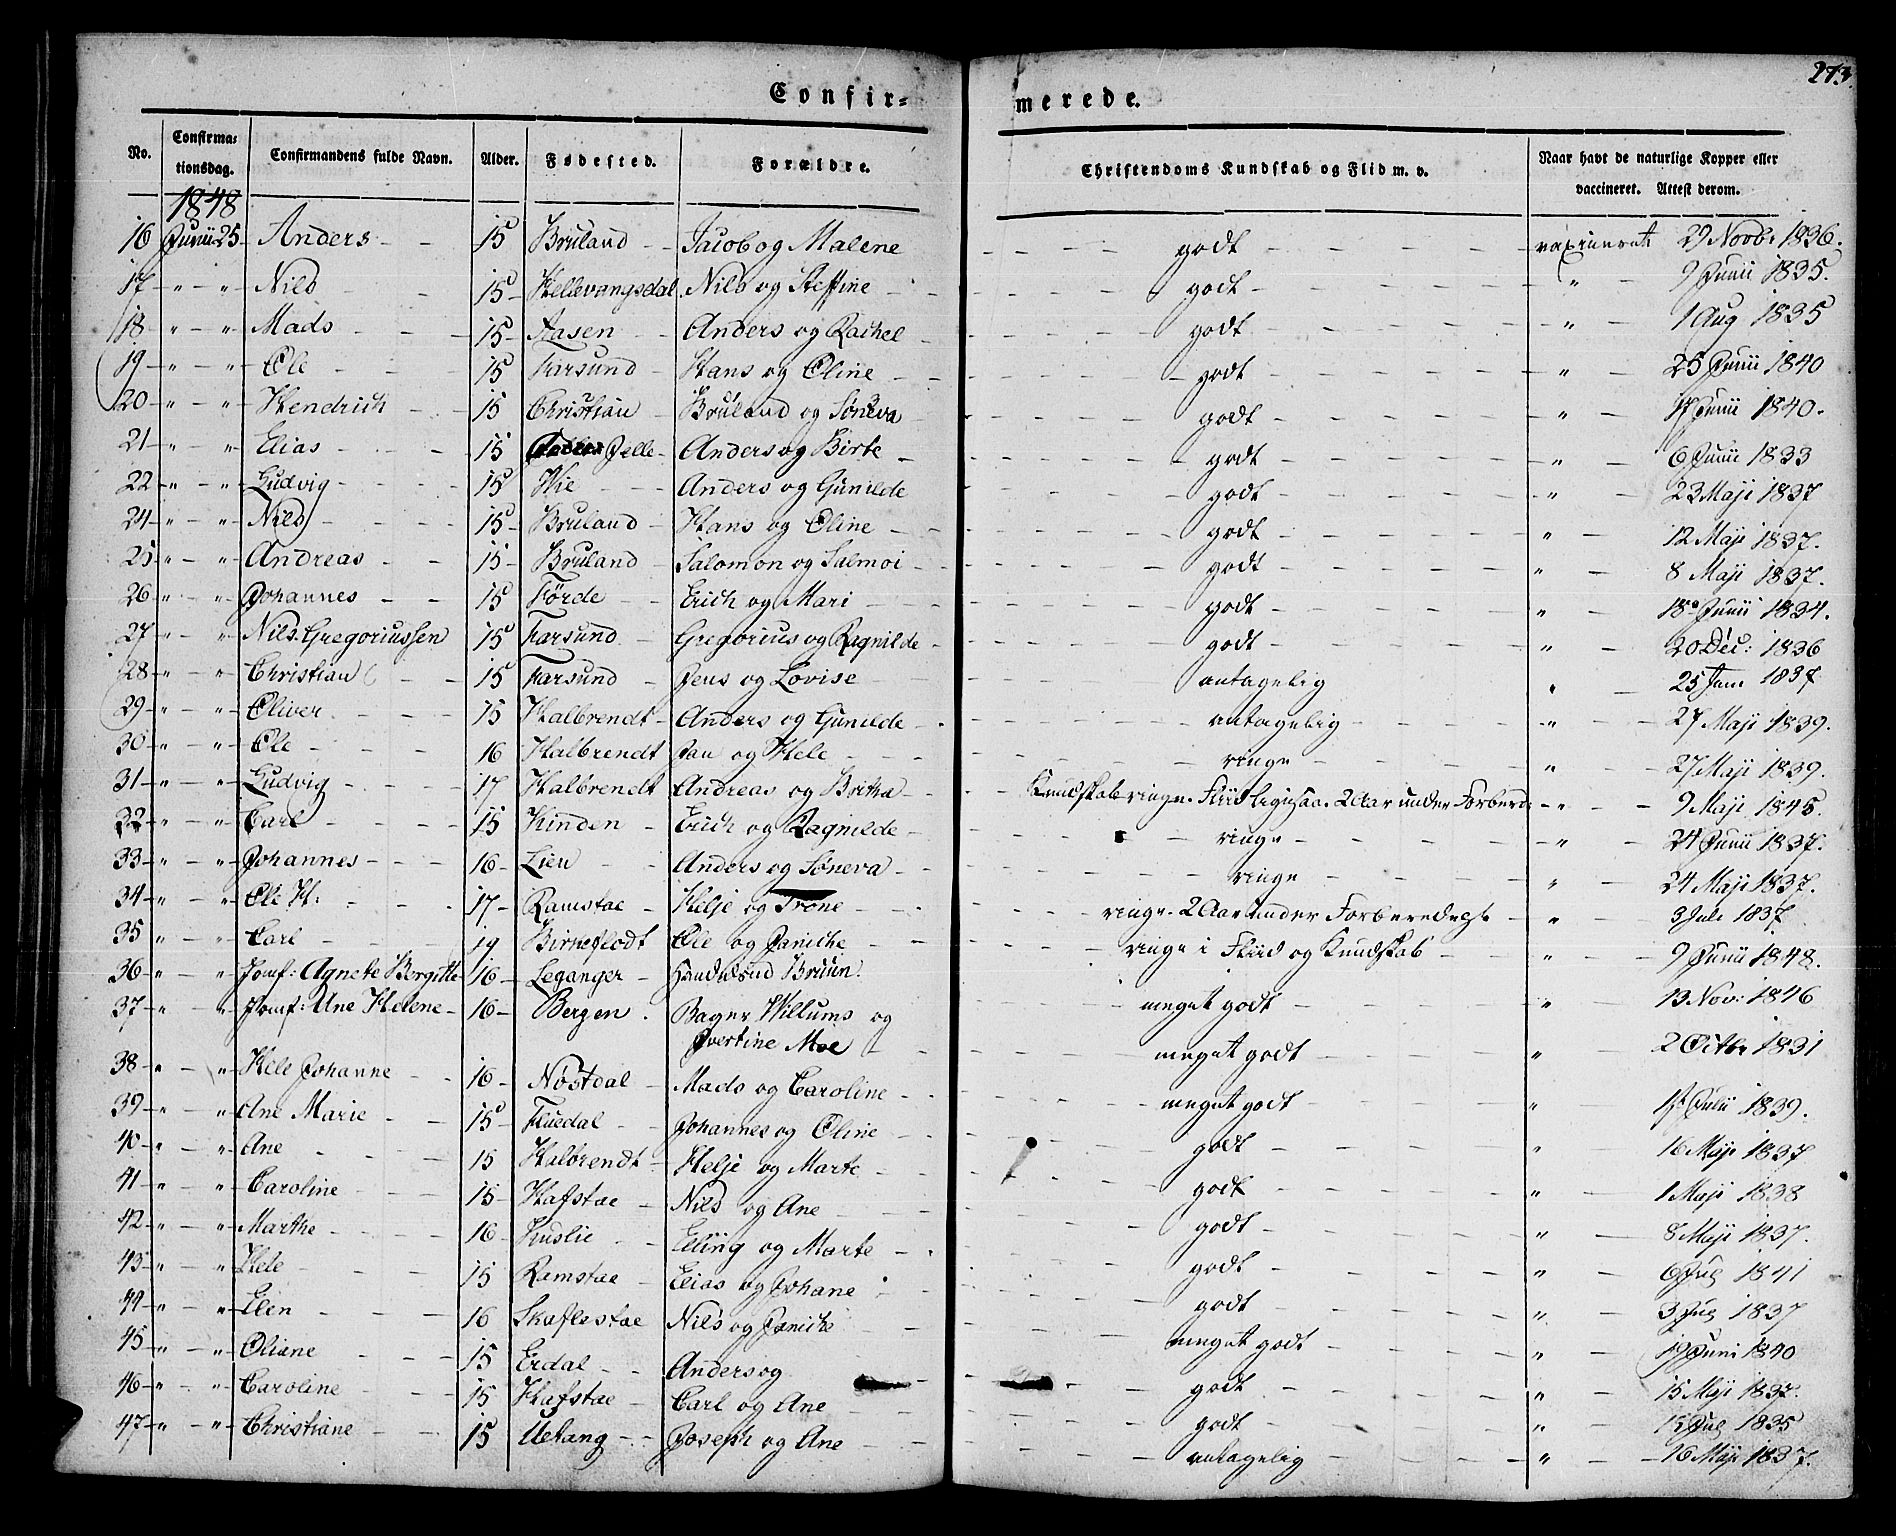 273.
Confir- merede.
No. Confirma-tionsdag. Confirmandens fulde Navn. Alder. Fødested. Forældre. Christendoms Kundskab og Flid m. v. Naar havt de naturlige Kopper eller vaccineret. Attest derom.
1848
16 Junii 25 Anders 15 Bruland Jacob og Malene godt vaxineret 29 Novbr 1836.
17 " " Nils 15 Hellevangsdal Nils og Steffine godt " 9 Junii 1835.
18 " " Mads 15 Aasen Anders og Rachel godt " 1 Aug 1835
19 " " Ole 15 Farsund Hans og Oline godt " 25 Junii 1840
20 " " Hendrich 15 Christian Bruland og Søneva godt " 17 Junii 1840.
21 " " Elias 15 Jelle Anders og Birte godt " 6 Junii 1833
22 " " Ludvig 15 Hie Anders og Gunilde godt " 23 Maji 1837
24 " " Nils 15 Bruland Hans og Oline godt " 12 Maji 1837.
25 " " Andreas 15 Bruland Salomon og Salmoi godt " 8 Maji 1837.
26 " " Johannes 15 Förde Erich og Mari godt " 18 Junii 1834.
27 " " Nils Gregoriussen 15 Farsund Gregorius og Ragnilde godt " 20 Dec: 1836
28 " " Christian 15 Farsund Jens og Lovise antagelig " 25 Jam 1837
29 " " Oliver 15 Halbrendt Anders og Gunilde antagelig " 27 Maji 1839.
30 " " Ole 16 Halbrendt Jan og Hele ringe " 27 Maji 1839.
31 " " Ludvig 17 Halbrendt Andreas og Britha Kundskab ringe. Fliid ligesaa. 2 Aar under Forbered: " 9 Maji 1845
32 " " Carl 15 Hinden Erich og Ragnilde ringe " 24 Junii 1837.
33 " " Johannes 16 Lien Anders og Søneva ringe " 24 Maji 1837.
34 " " Ole H: 17 Ramstae Helje og Trone ringe. 2 Aar under Forberedelse " 3 Juli 1837
35 " " Carl 19 Birneflodt Ole og Janiche ringe i Fliid og Kundskab " 9 Junii 1848.
36 " " Jomf: Agnete Bergitte 16 Leganger Bruun. meget godt " 13 Nov: 1846
37 " " Jomf: Ane Helene 16 Bergen. Bager Willums og
Ivertine Moe meget godt " 2 Octbr 1831
38 " " Hele Johanne 16 Nøstdal Mads og Caroline meget godt " 17 Julii 1839.
39 " " Ane Marie 15 Fluedal Johannes og Oline godt " 16 Maji 1837
40 " " Ane 15 Halbrendt Helje og Marte godt " 1 Maji 1838
41 " " Caroline 15 Hafstae Nils og Ane godt " 8 Maji 1837.
42 " " Marthe 16 Kuslie Elling og Marte godt " 6 Jul 1841
43 " " Hele 15 Ramstae Elias og Johane godt " 3 Jul 1837
44 " " Elen 16 Skaflestae Nils og Janiche meget godt " 19 Juni 1840
45 " " Oliane 15 Erdal Anders og godt " 15 Maji 1837.
46 " " Caroline 15 Hafstae Carl og Ane godt " 15 Jul 1835
47 " " Christiane 15 Uetang Joseph og Ane antagelig " 16 Maji 1837.